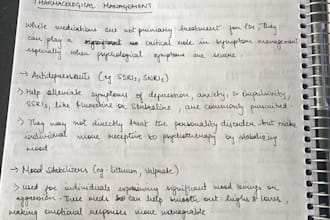 PHARMACOLOGICAL MANAGEMENT
While medications are not primary treatment for they
can play a critical role in symptom management
especially when psychological symptoms are severe
→ Antidepressants (eg SSRIs, SNRIs)
→ Help alleviate symptoms of depression, anxiety, & impulsivity,
SSRIs, like fluoxetine or Sertraline, are commonly prescribed.
→ They may not directly treat the personality disorder but make
individual more receptive to psychotherapy by stabilizing
mood
→ Mood Stabilizers (eg. Lithium, Valproate)
→ used for individuals experiencing significant mood swings or
aggression. These meds can help smooth out highs & lows,
making emotional responses more manageable